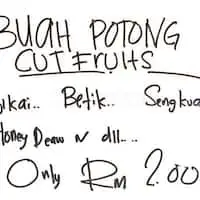 BUAH POTONG
CUT FRUITS
Betik.. Sengkua
Honey Deaw N dll...
Only RM 2.00